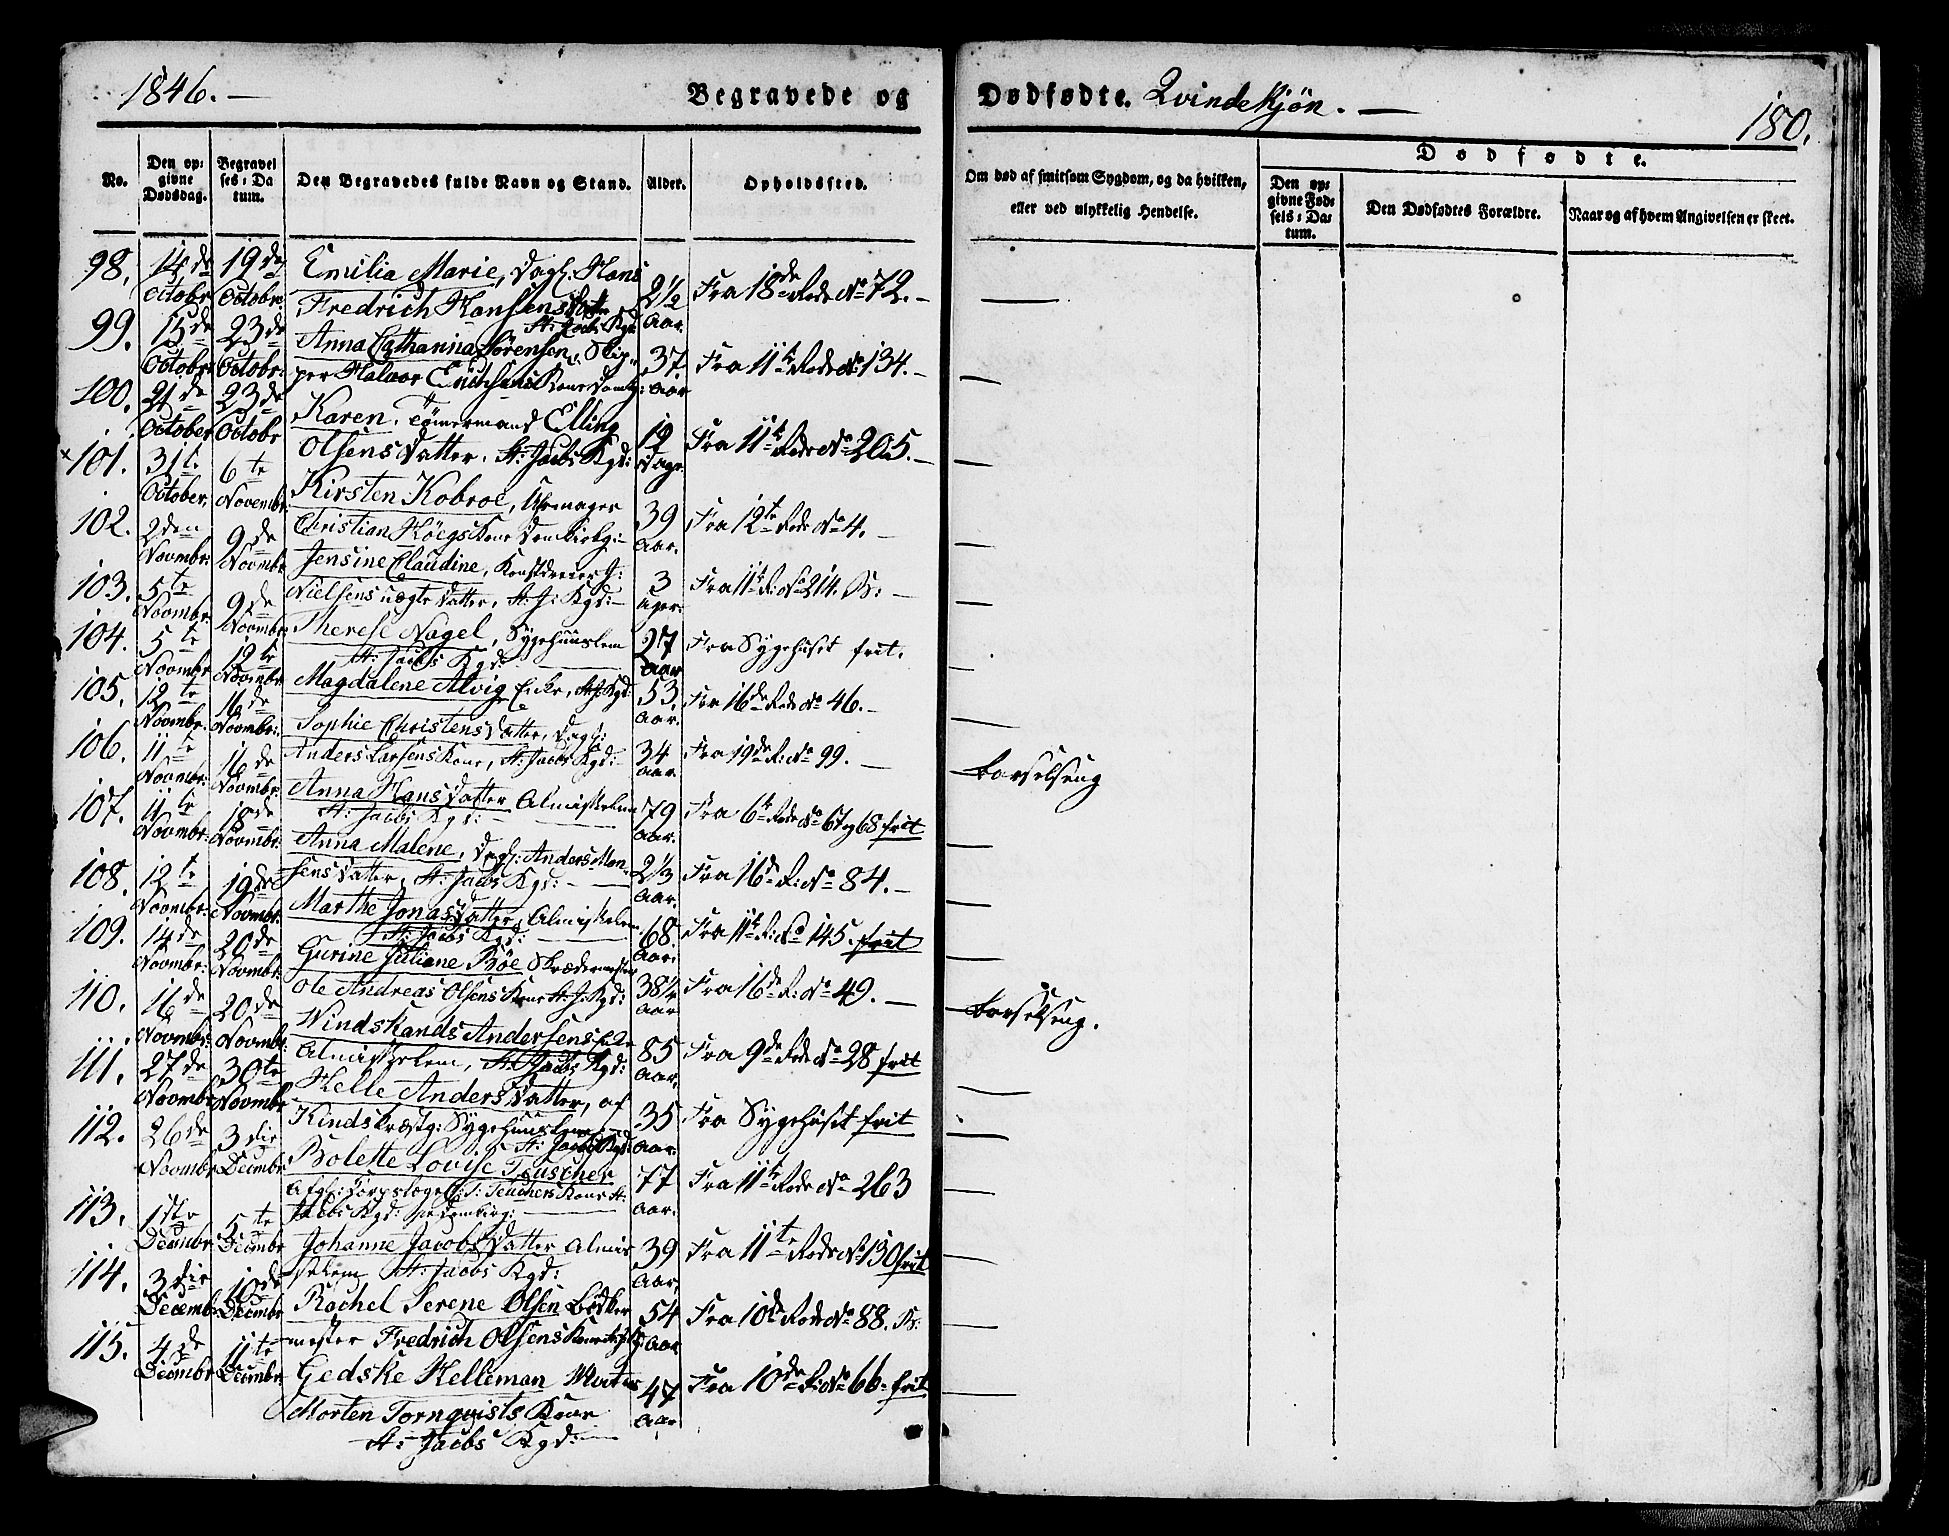 1846.
Begravede og
Dødfødte. Qvindekjøn.
180.
No.
Den op:
givne
Dødsdag.
Begravel
ses: Da
tum.
Den Begravedes fulde Navn og Stand.
Alder.
Opholdssted.
Om død af smitsom Sygdom, og da hvilken,
eller ved ulykkelig Hendelse.
Dødfødte.
Den op:
givne Fød:
sels: Da:
tum.
Den Dødfødtes Forældre.
Naar og af hvem Angivelsen er skeet.
98. 14de Octobr 19de Octobr.
Emilia Marie, Dagl: Hans
Fredrich Hansens Datter
St: Jacobs Kgd.
2½ Aar.
Fra 18de Rode No 72.
99. 15de Octobr 23de Octobr.
Anna Cathanna Sørensen, Skip-
per Halvor Erichsens Kone Domkg:
37. Aar
Fra 11te Rode No 134.
100. 21de October 23de Octobr
Karen, Tømermand Elling
Olsens Datter. St: Jacobs Kgd:
12 Dage.
Fra 11te Rode No 205.
101. 31te October. 6te Novembr
Kirsten Kobroe, Uhrmager
Christian Höegs Kone Domkirkg:
39 Aar.
Fra 12te Rode No 4.
102. 2den Novmbr. 9de Novmbr
Jensine Claudine, Konstdreier J:
Nielsens uægte Datter, St. J: Kgd:
3 Uger.
Fra 11te R: No 214. B:
103. 5te Novmbr. 9de Novmbr
Therese Nagel, Sygehuuslem
St: Jacobs Kgd:
27 Aar
Fra Sygehuset frit.
104. 5te Novmbr 12te Novmbr
Magdalene Alvig Enke, St J: Kgd:
53. Aar.
Fra 16de Rode No 46.
105. 12te Novmbr. 16de Novmbr.
Sophie Christens Datter, Dagl:
Anders Larsens Kone, St: Jacobs Kgd:
34 Aar.
Fra 19de R: No 99.
Barselseng
106. 11te Novmbr. 16de Novmbr.
Anna Hans Datter Almisselem
St: Jacobs Kgd:
79 Aar.
Fra 6te Rode No 67 og 68 frit
107. 11te Novmbr. 18de Novmbr.
Anna Malene, Dagl: Anders Mon-
sens Datter, St: Jacobs Kgd:
2⅓ Aar.
Fra 16de R: No 84.
108. 12te Novmbr: 19de Novmbr.
Marthe Jonas Datter, Almisselem
St: Jacobs Kgd:
68. Aar.
Fra 11te R: No 145. frit
109. 14de Novmbr. 20de Novmbr.
Gurine Juliane Böe Skrædermester
Ole Andreas Olsens Kone St: J: Kgd:
38¼ Aar
Fra 16de R: No 49.
Barselseng.
110. 16de Novmbr: 20de Novmbr:
Windskands Andersens Enke
Almisselem, St: Jacobs Kgd:
85 Aar.
Fra 9de Rode No 28 frit
111. 27de Novmbr 30te Novmbr
Helle Anders Datter, af
Kindskræstg: Sygehuuslem
St: Jacobs Kgd:
35 Aar.
Fra Sygehuset frit
112. 26de Novmbr 3die Decmbr
Bolette Lovise Teuscher
Afgl: Corpslæge Teuchers Kone St.
Jacobs Kgd:
77 Aar.
Fra 11te Rode No 263
113. 1ste Decmbr 5te Decmbr
Johanne Jacobs Datter Almis
selem, St: Jacobs Kgd:
39 Aar,
Fra 11te Rode No 130 frit
114. 3die Decembr 10de Decmbr
Rachel Serene Olsen Bødker
mester Fredrich Olsens Kone
54 Aar
Fra 10de Rode No 88. B:
115. 4de Decmbr 11te Decmbr.
Gedske Helleman
Morten Tornqvists Kone
St: Jacobs Kgd:
47 Aar
Fra 10de R: No 66. frit